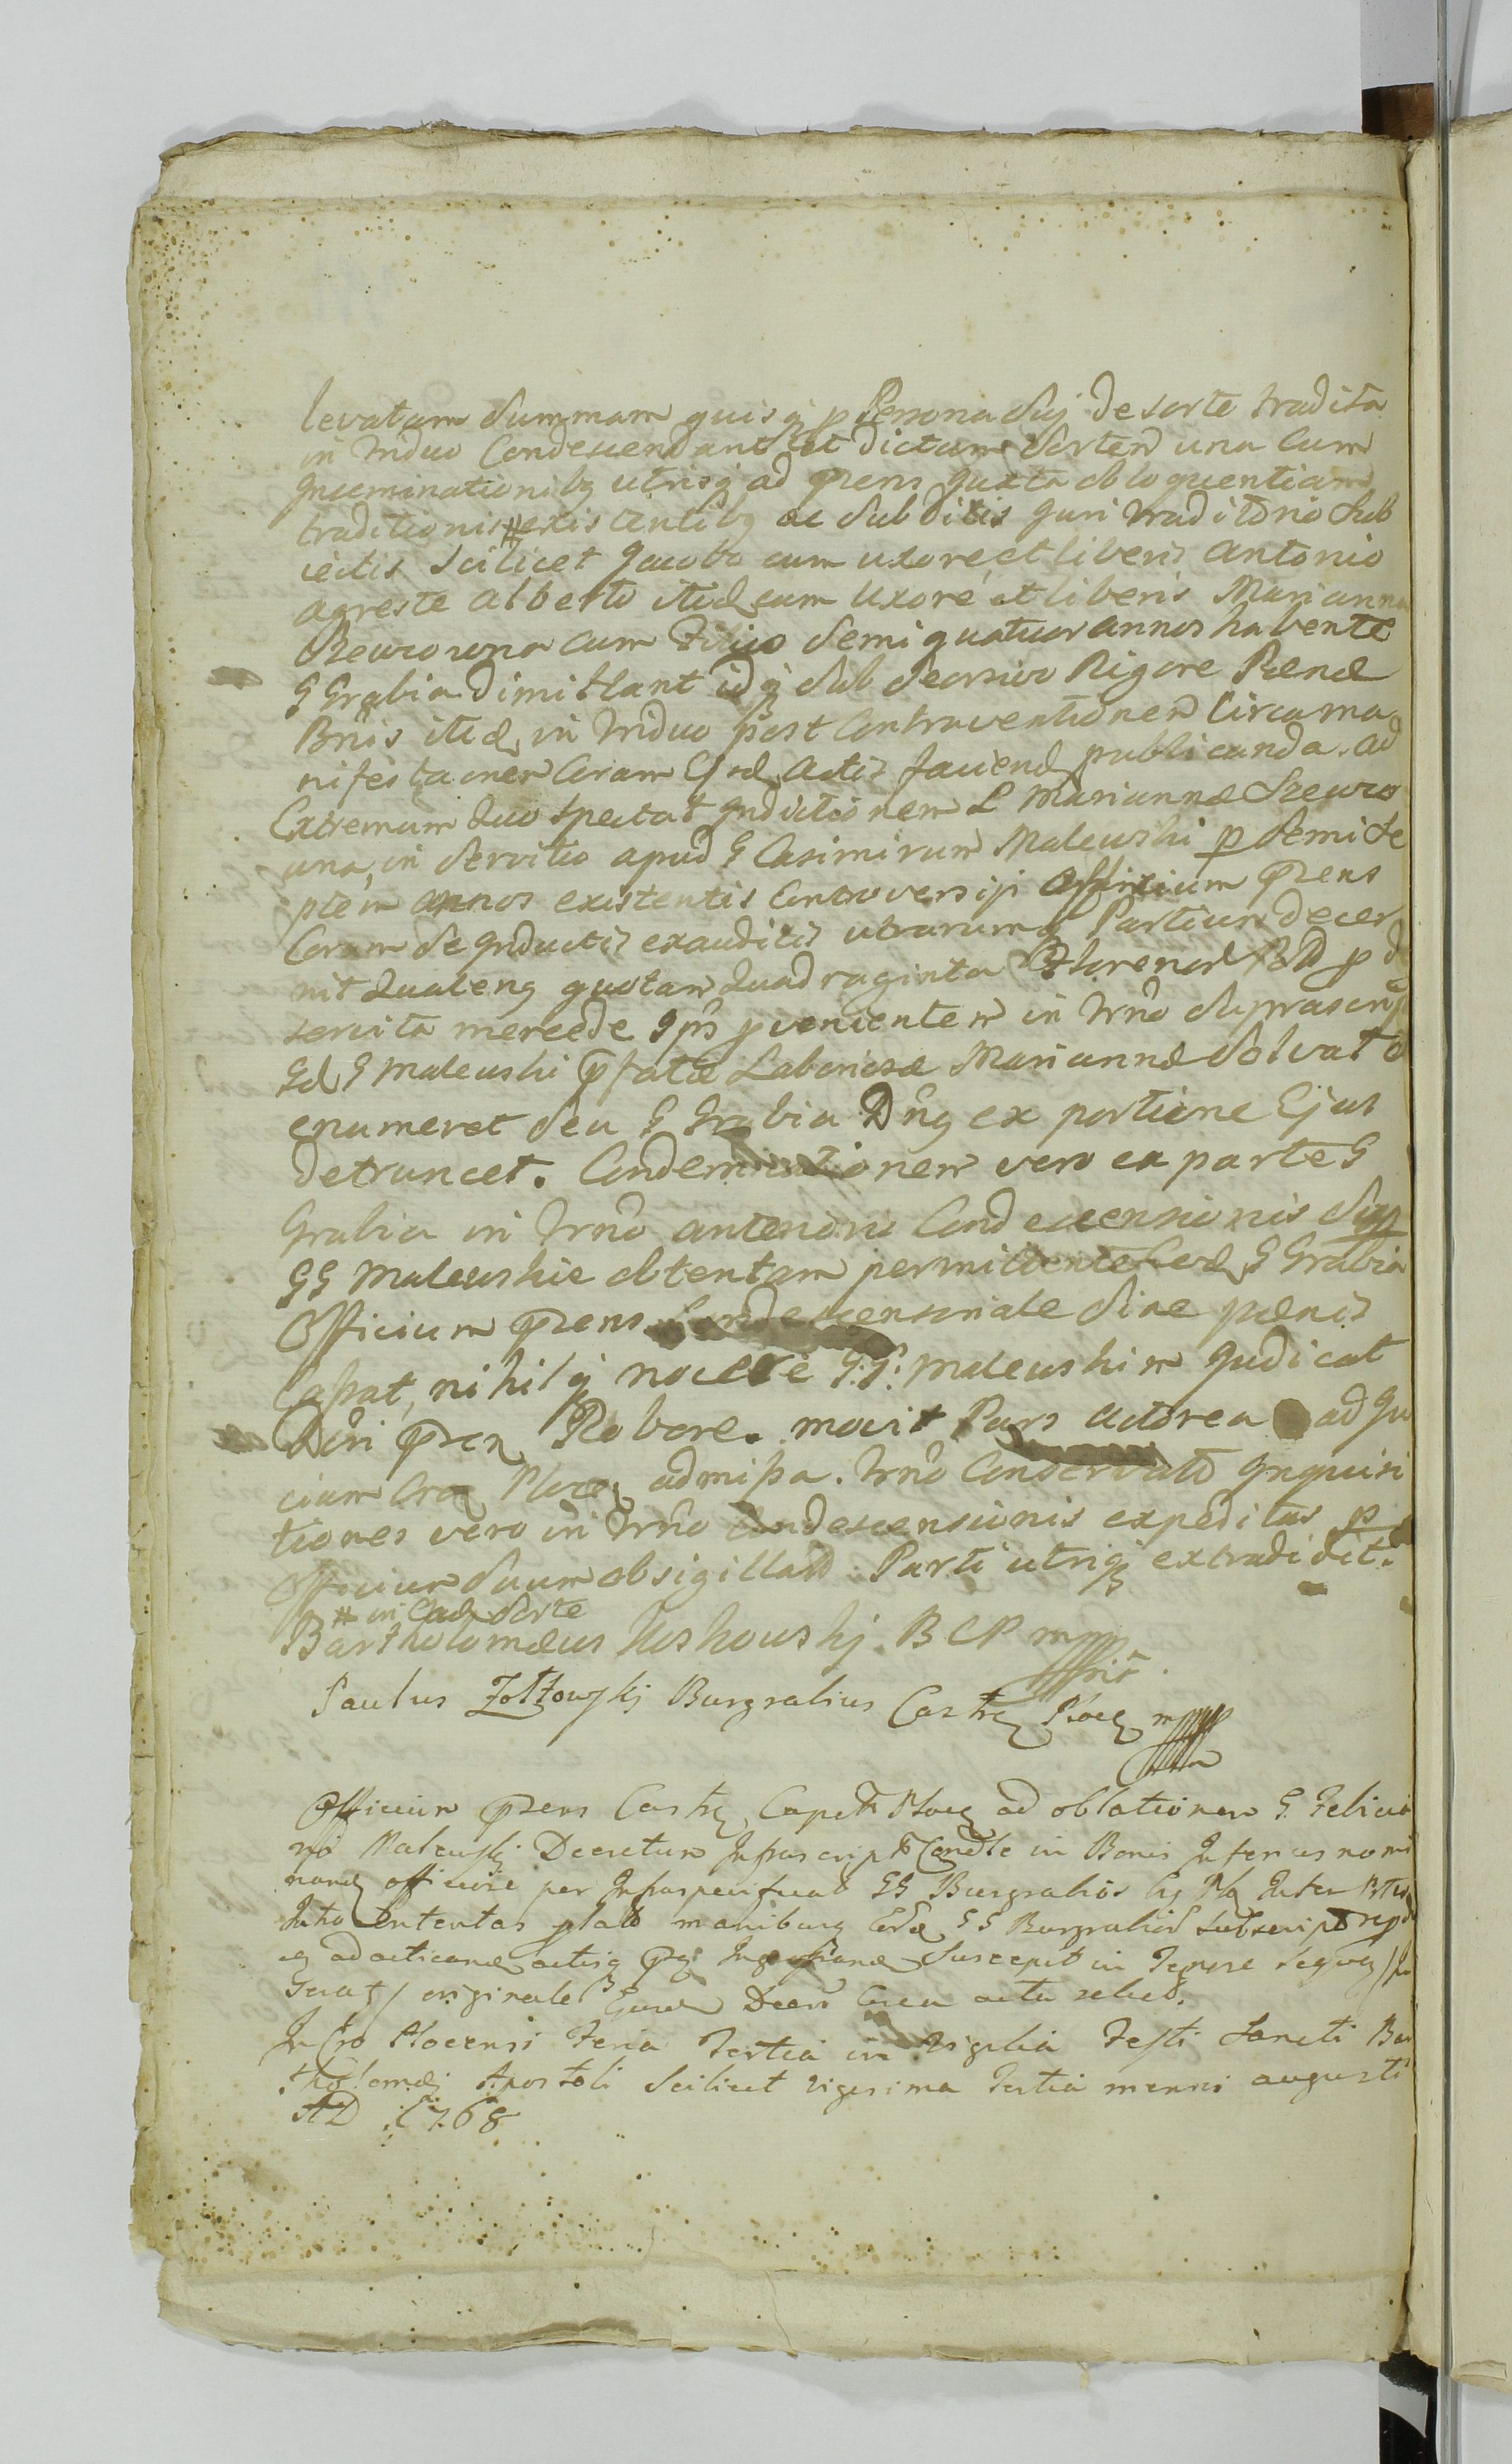 levatam summam quisq p Persona Sui de sorte tradita
in triduo Condescendant Et dictam Sortem una Cum
Inseminationibq utrisq ad prens Juxta obloquentiam
traditionis # existentibq ac Subditis Juri traditorio Sub
iectis Scilicet Jacobo cum uxore, et liberis Antonio
agreste Alberto itid cum Uxore et liberis Marianna
Szewcowna cum Filio Semi quatuor annos habente
G Grabia dimittant idq Sub Rigore Pænæ
Bnis itid in triduo post Contraventionem Circa ma
nifestaonem Coram Ejsd Actis faciend publicanda. ad
Extremum quo spectat Inductionem L Mariannæ Szewco
una, in Servitio apud G Casimirum Malewski p Semi Se
ptem annos existentis Controversijs Officium prens
Coram Se Inductis exauditis utrarumq Partium decer
nit Quateng quotam Quadraginta Florenor Pol p de
servita mercede Ipsi pvenientem in trno Suprascrip
Gd G Malewski pfatæ Laboriosæ Mariannæ Solvat et
enumeret Seu G Grabia Dng ex portione Ejus
detruncet. Condemnationem vero ex parte G
Grabia in trno anterioris Condescensionis Sup
GG Malewskie obtentam permittente Eod G Grabia
Officium prens Condescensoriale Sine pænis
Cassat, nihilq nocere G:G: Malewskim Judicat
Dcri prens Robore. movit Pars actorea ad Ju
cium Cra Plocen admissa. trno Conservato Inquisi
tiones vero in trno Condescensionis expeditas p
Officium Suum obsigillatas Parti utriq extradidit.
# in Ead Sorte
Bartholomæus Koskowskj BCP mpp
Paulus Zołtowskj Burgrabius Castr Ploc mpp
Officium prens Castr Capit Ploc ad oblationem G. Felicia
ni Malewskj Decretum Infrascript Condle in Bonis Inferius nomi
nand officiose per Infraspecificat GG Burgrabios Cg Plo Inter Ptes
Intro Contentas plat manibusq Eord GG Burgrabior Subscript
ad acticand actisq Ingrossand Suscepit in Tenore Sequen
originale Circa acta
In Cro Plocensi Feria Tertia in Vigilia Festi Sancti Bar
tholomæi Apostoli Scilicet Vigesima Tertia mensis augusti
AD 1768